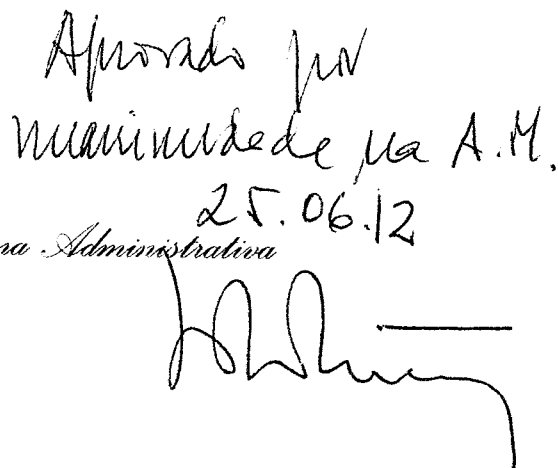 Aprovado por
unanimidade na A.M.
25.06.12
na Administrativa